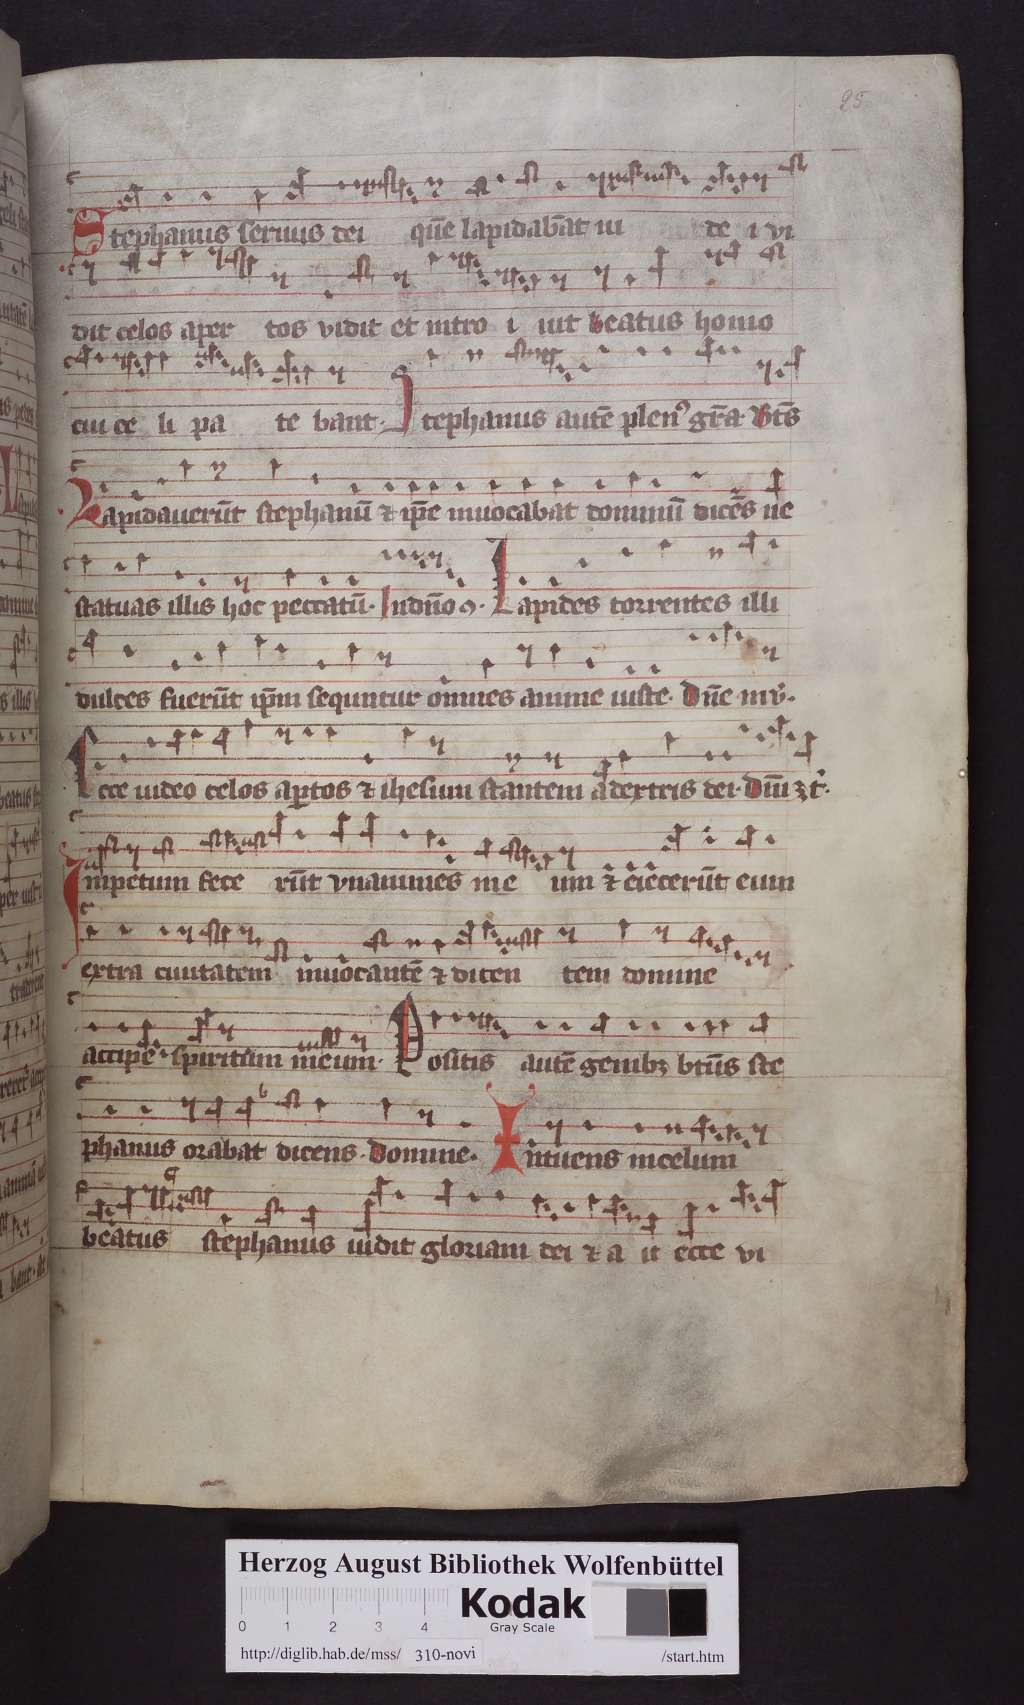 25
Stephanus seruus dei quē lapidabāt iu de i vi
dit celos aper tos vidit et intro i iuit beatus homo
cui ce li pa te bant. Stephanus autē plenꝰ gr̄a Vt̄s
Lapidauerūt stephanū ⁊ ip̄e inuocabat dominū dicēs ne
statuas illis hoc peccatū. Indn̄o ꝯ. Lapides torrentes illi
dulces fuerūt ip̄m sequntur omnes anime iuste. Dn̄e
Ecce uideo celos aꝑtos ⁊ ihesum stantem a dextris dei.
Impetum fece rūt vnanimes in e um ⁊ eiecerūt eum
extra ciuitatem inuocantē ⁊ dicen tem domine
accipe spiritum meum. Positis autē genibꝫ bt̄us ste
phanus orabat dicens. Domine. Intuens incelum
beatus stephanus uidit gloriam dei ⁊ a it ecce vi
Herzog August Bibliothek Wolfenbüttel
0 1 2 3 4
Kodak
Gray Scale
http://diglib.hab.de/mss/ 310-novi /start.htm